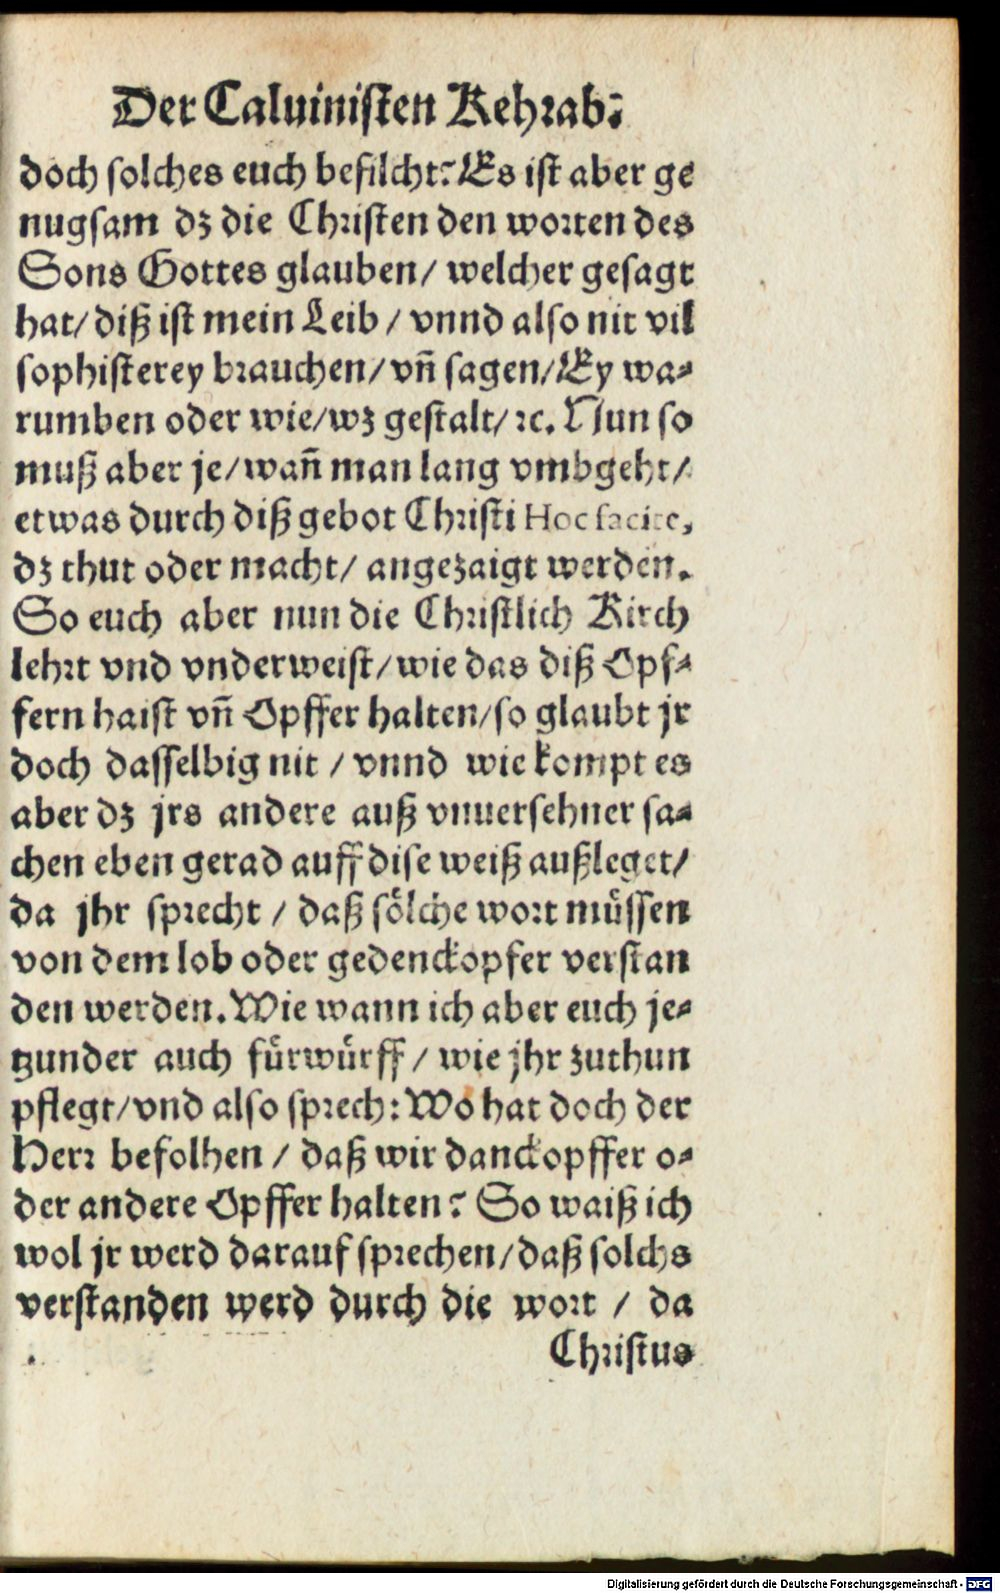 Der Caluinisten Kehrab.
doch solches euch befilcht? Es ist aber ge
nugsam dz die Christen den worten des
Sons Gottes glauben/ welcher gesagt
hat/ diß ist mein Leib / vnnd also nit vil
sophisterey brauchen/ vñ sagen/ Ey wa-
rumben oder wie/ wz gestalt/ ꝛc. Nun so
muß aber je/ wañ man lang vmbgeht/
etwas durch diß gebot Christi Hoc facite,
dz thut oder macht/ angezaigt werden.
So euch aber nun die Christlich Kirch
lehrt vnd vnderweist/ wie das diß Opf-
fern haist vñ Opffer halten/ so glaubt jr
doch dasselbig nit / vnnd wie kompt es
aber dz jrs andere auß vnuersehner sa-
chen eben gerad auff dise weiß außleget/
da jhr sprecht / daß soͤlche wort muͤssen
von dem lob oder gedenckopfer verstan
den werden. Wie wann ich aber euch je-
tzunder auch fuͤrwuͤrff / wie jhr zuthun
pflegt/ vnd also sprech: Wo hat doch der
Herr befolhen / daß wir danckopffer o-
der andere Opffer halten? So waiß ich
wol jr werd darauf sprechen/ daß solchs
verstanden werd durch die wort / da
Christus
Digitalisierung gefördert durch die Deutsche Forschungsgemeinschaft - DFG